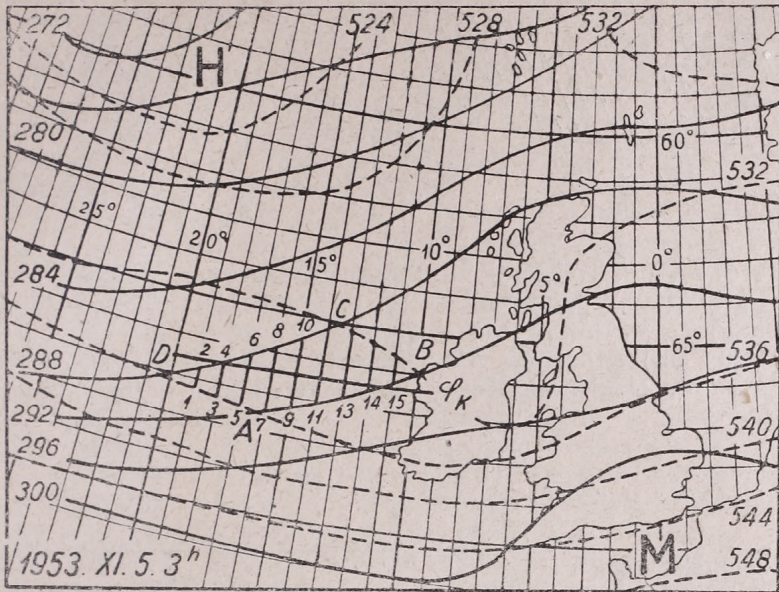 272
524
528
532
H
280
60°
532
25°
20°
15°
10°
284
5°
0°
C
D
2 4 6 8 10
B
65°
536
288
φK
1 3 5 7 9 11 13 14 15
A
292
540
296
544
300
M
548
1953. XI. 5. 3h